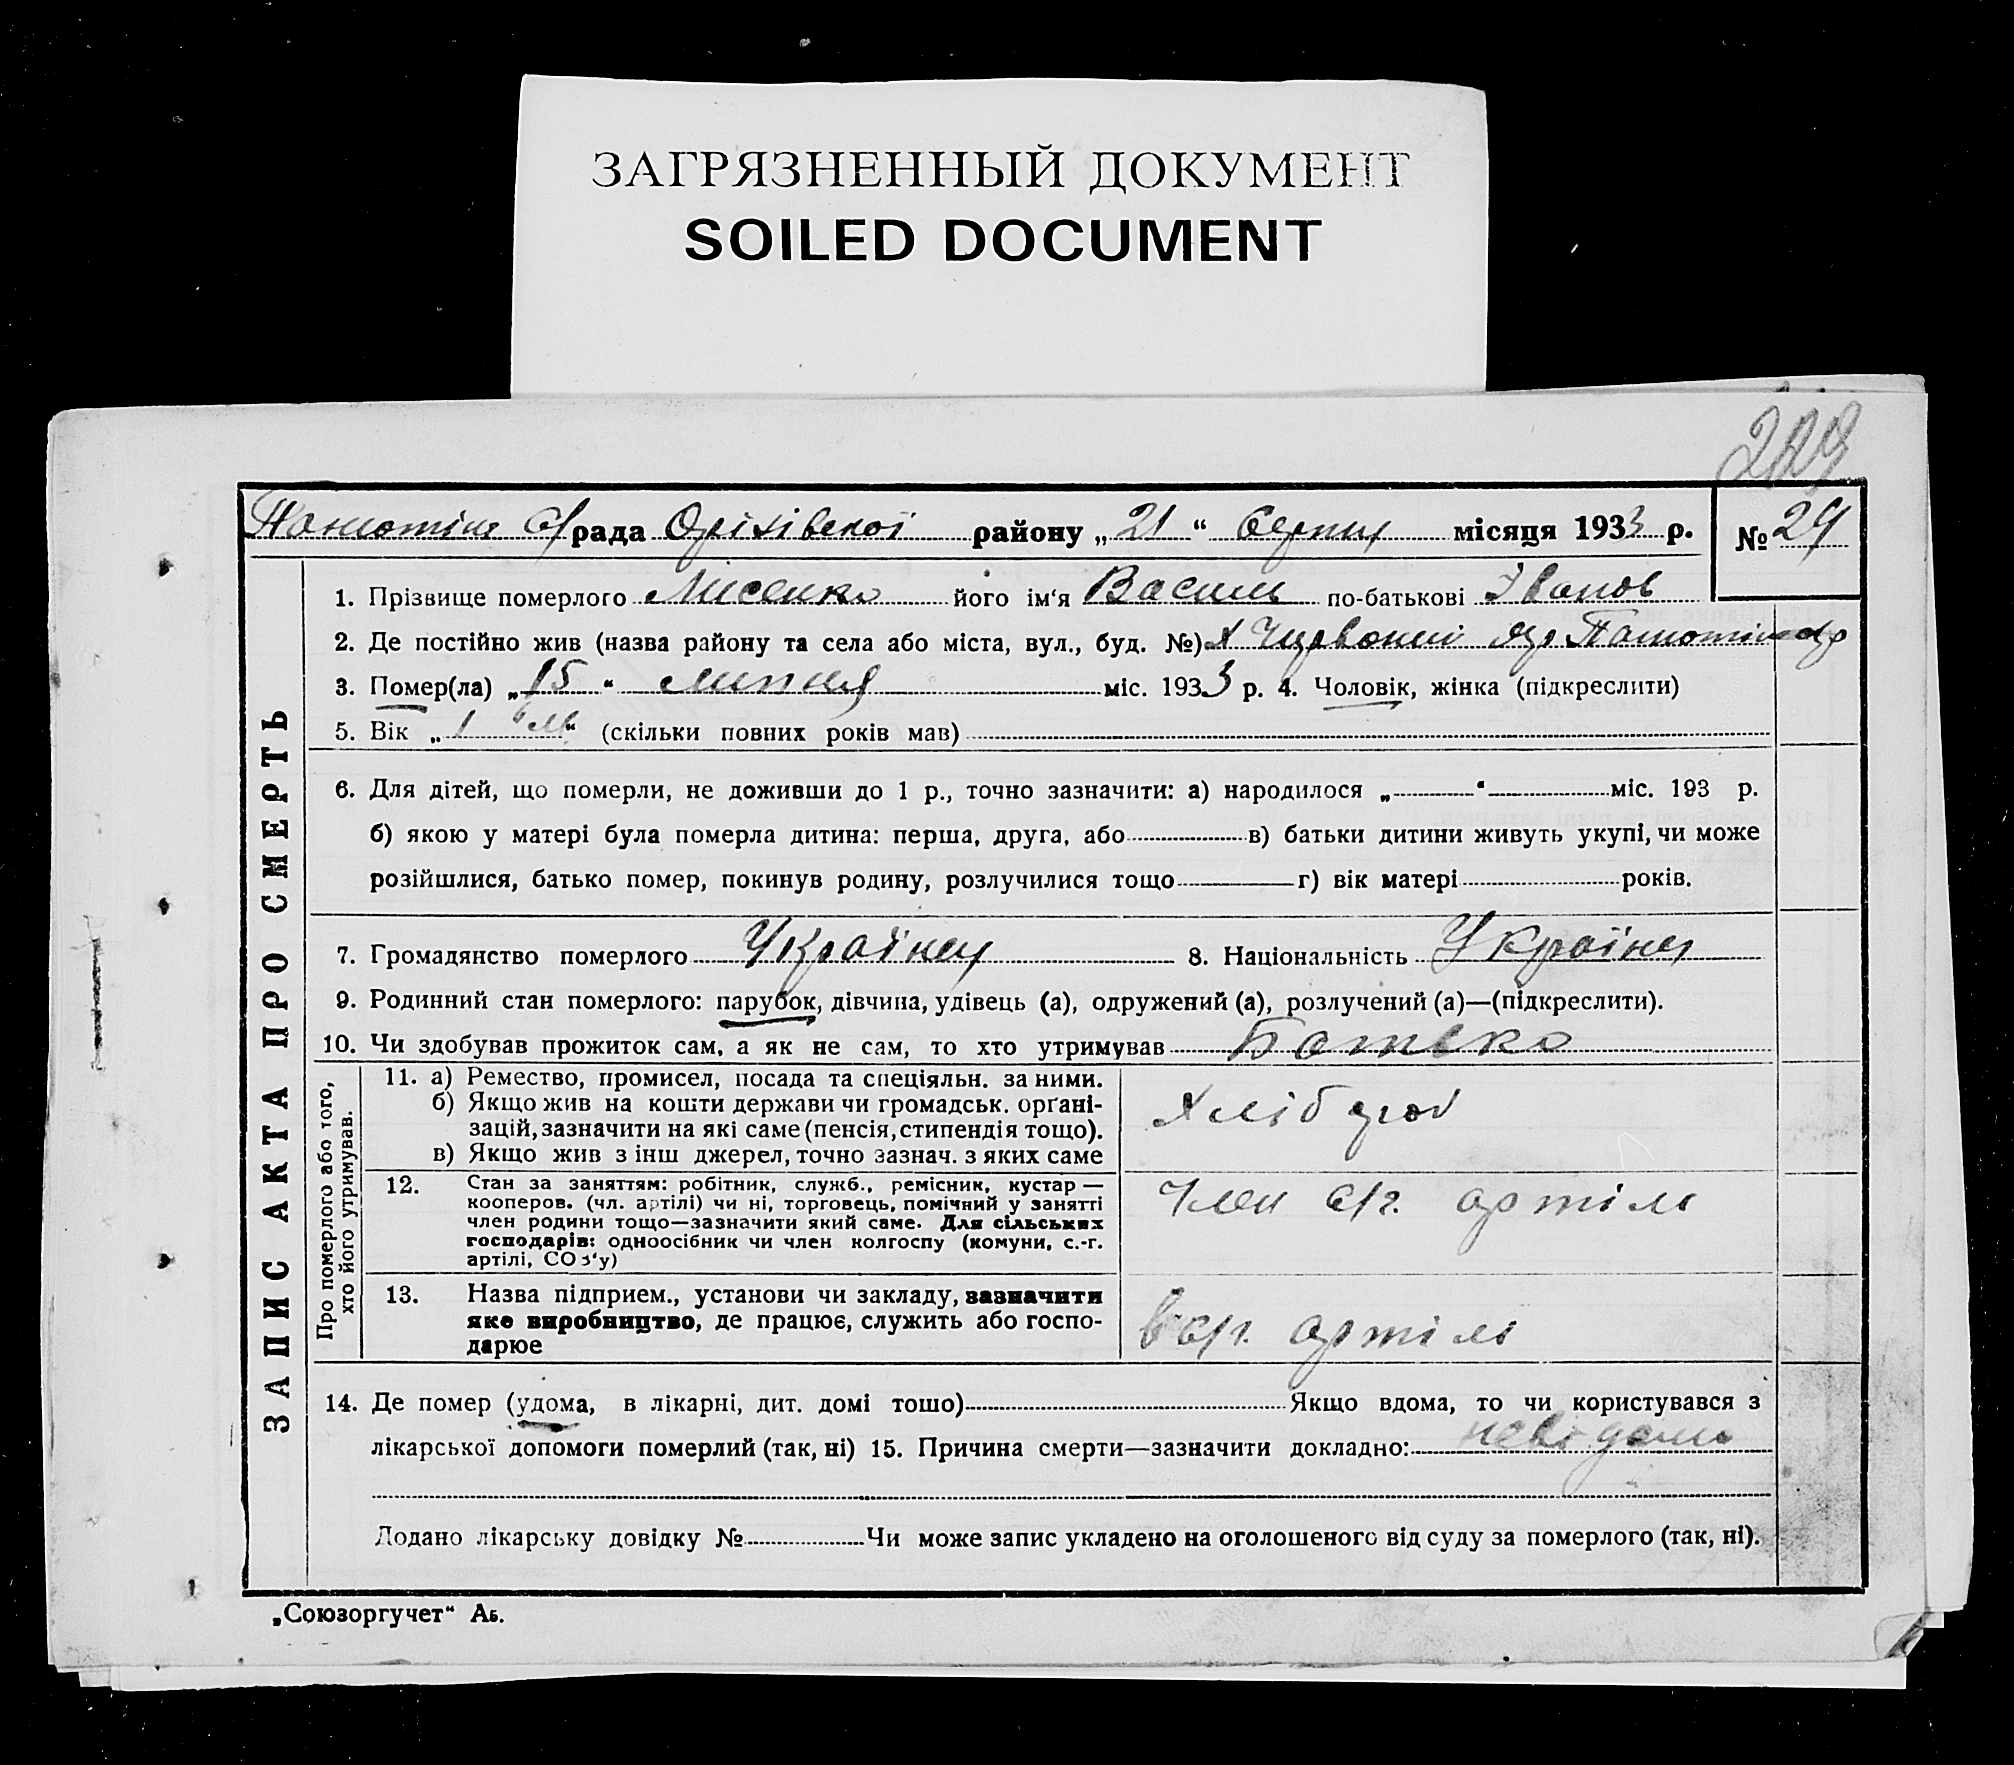 ЗАГРЯЗНЕННЫЙ ДОКУМЕНТ
SOILED DOCUMENT
с/рада Оріхівської району „21“ серпня місяця 1933 р. № 29
ЗАПИС АКТА ПРО СМЕРТЬ
1. Прізвище померлого Лисенко його ім‘я Василь по-батькові Іванов
2. Де постійно жив (назва району та села або міста, вул., буд. №) х Червоний Яр
3. Помер(ла) „15“ липня міс. 1933 р. 4. Чоловік, жінка (підкреслити)
5. Вік „1 м“ (скільки повних років мав)
6. Для дітей, що померли, не доживши до 1 р., точно зазначити: а) народилося „ “ міс. 193 р.
б) якою у матері була померла дитина: перша, друга, або в) батьки дитини живуть укупі, чи може
розійшлися, батько помер, покинув родину, розлучилися тощо г) вік матері років.
7. Громадянство померлого Українец 8. Національність Українец
9. Родинний стан померлого: парубок, дівчина, удівець (а), одружений (а), розлучений (а)—(підкреслити).
10. Чи здобував прожиток сам, а як не сам, то хто утримував Батько
Про померлого або того,
хто його утримував.
11. а) Ремество, промисел, посада та спеціяльн. за ними.
б) Якщо жив на кошти держави чи громадськ. орґані-
зацій, зазначити на які саме (пенсія, стипендія тощо).
в) Якщо жив з інш джерел, точно зазнач. з яких саме
Хлібороб
12. Стан за заняттям: робітник, служб., ремісник, кустар —
кооперов. (чл. артілі) чи ні, торговець, помічний у занятті
член родини тощо—зазначити який саме. Для сільських
господарів: одноосібник чи член колгоспу (комуни, с.-г.
артілі, СОз‘у)
Член с/г. артіль
13. Назва підприєм., установи чи закладу, зазначити
яке виробництво, де працює, служить або госпо-
дарює
в с/г. артіль
14. Де помер (удома, в лікарні, дит. домі тошо) Якщо вдома, то чи користувався з
лікарської допомоги померлий (так, ні) 15. Причина смерти—зазначити докладно: невідома
Додано лікарську довідку № Чи може запис укладено на оголошеного від суду за померлого (так, ні).
„Союзоргучет“ Аб.